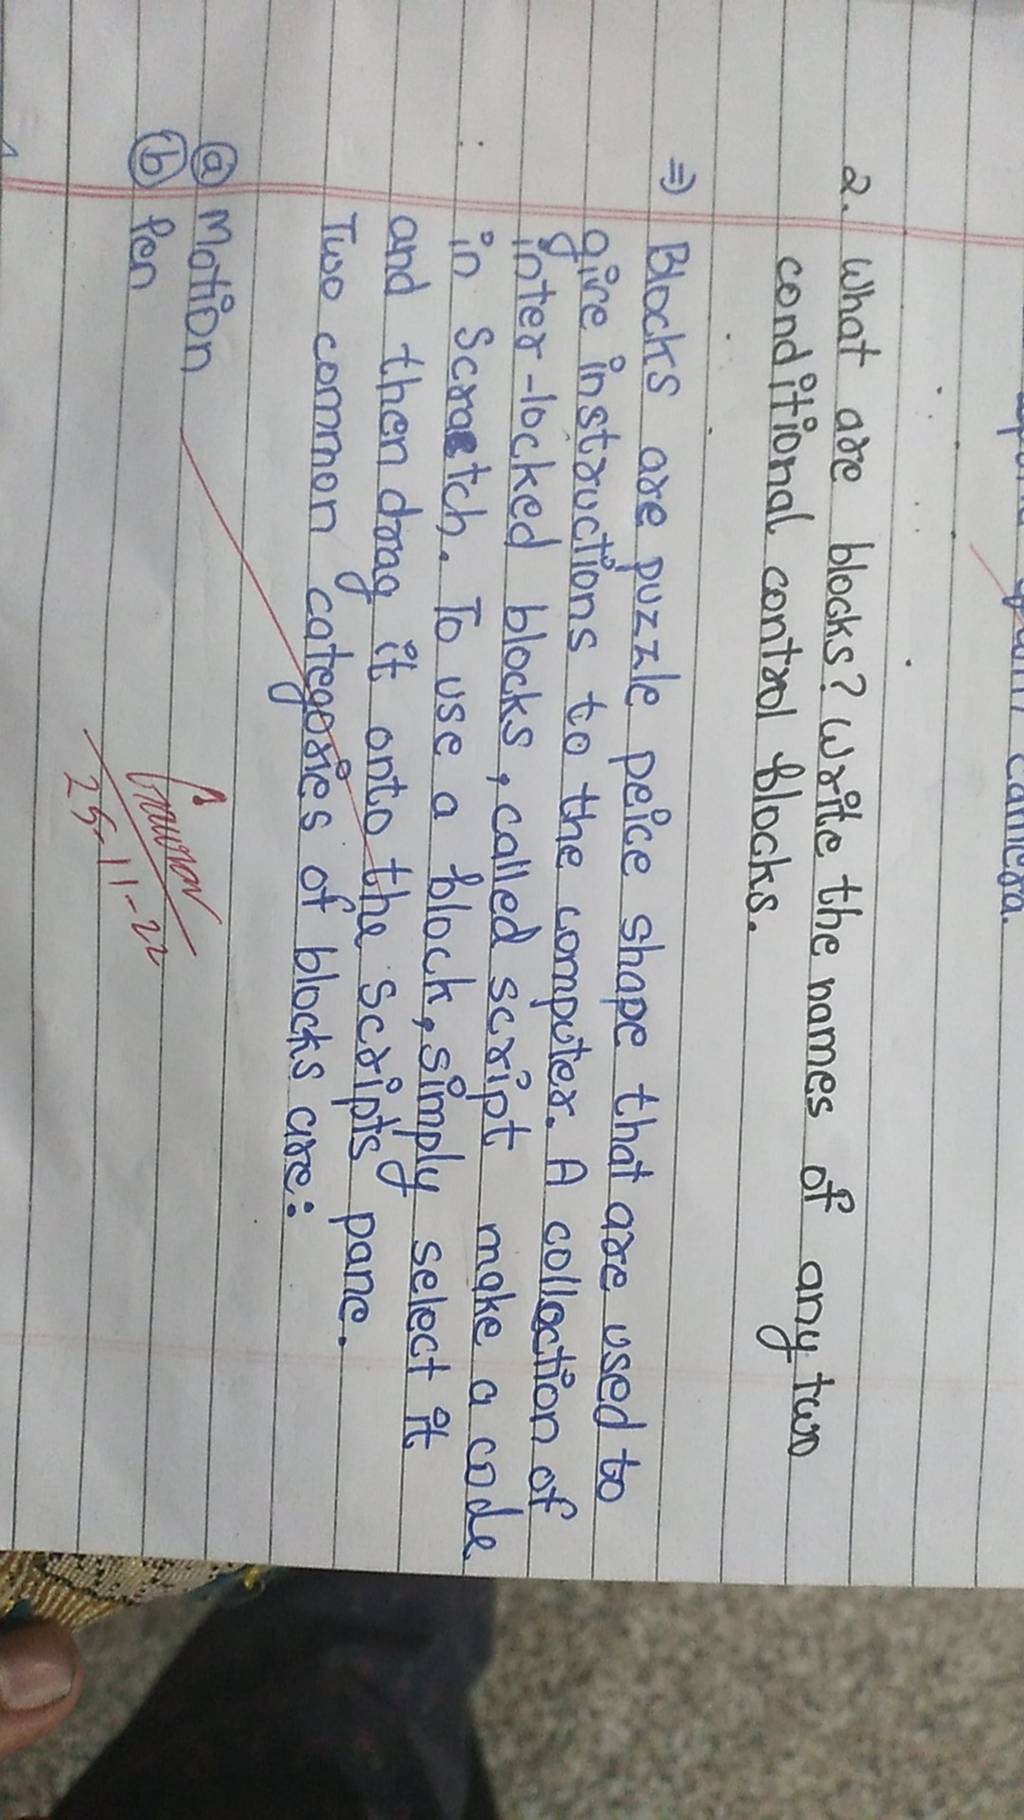 camera.
2. What are blocks? Write the names of any two
conditional control blocks.
⇒ Blocks are puzzle peice shape that are used to
give instructions to the computer. A collection of
inter-locked blocks, called script make a code
in Scratch. To use a block, simply select it
and then drag it onto the scripts pane.
Two common categories of blocks are:
ⓐ Motion
ⓑ Pen
25-11-22